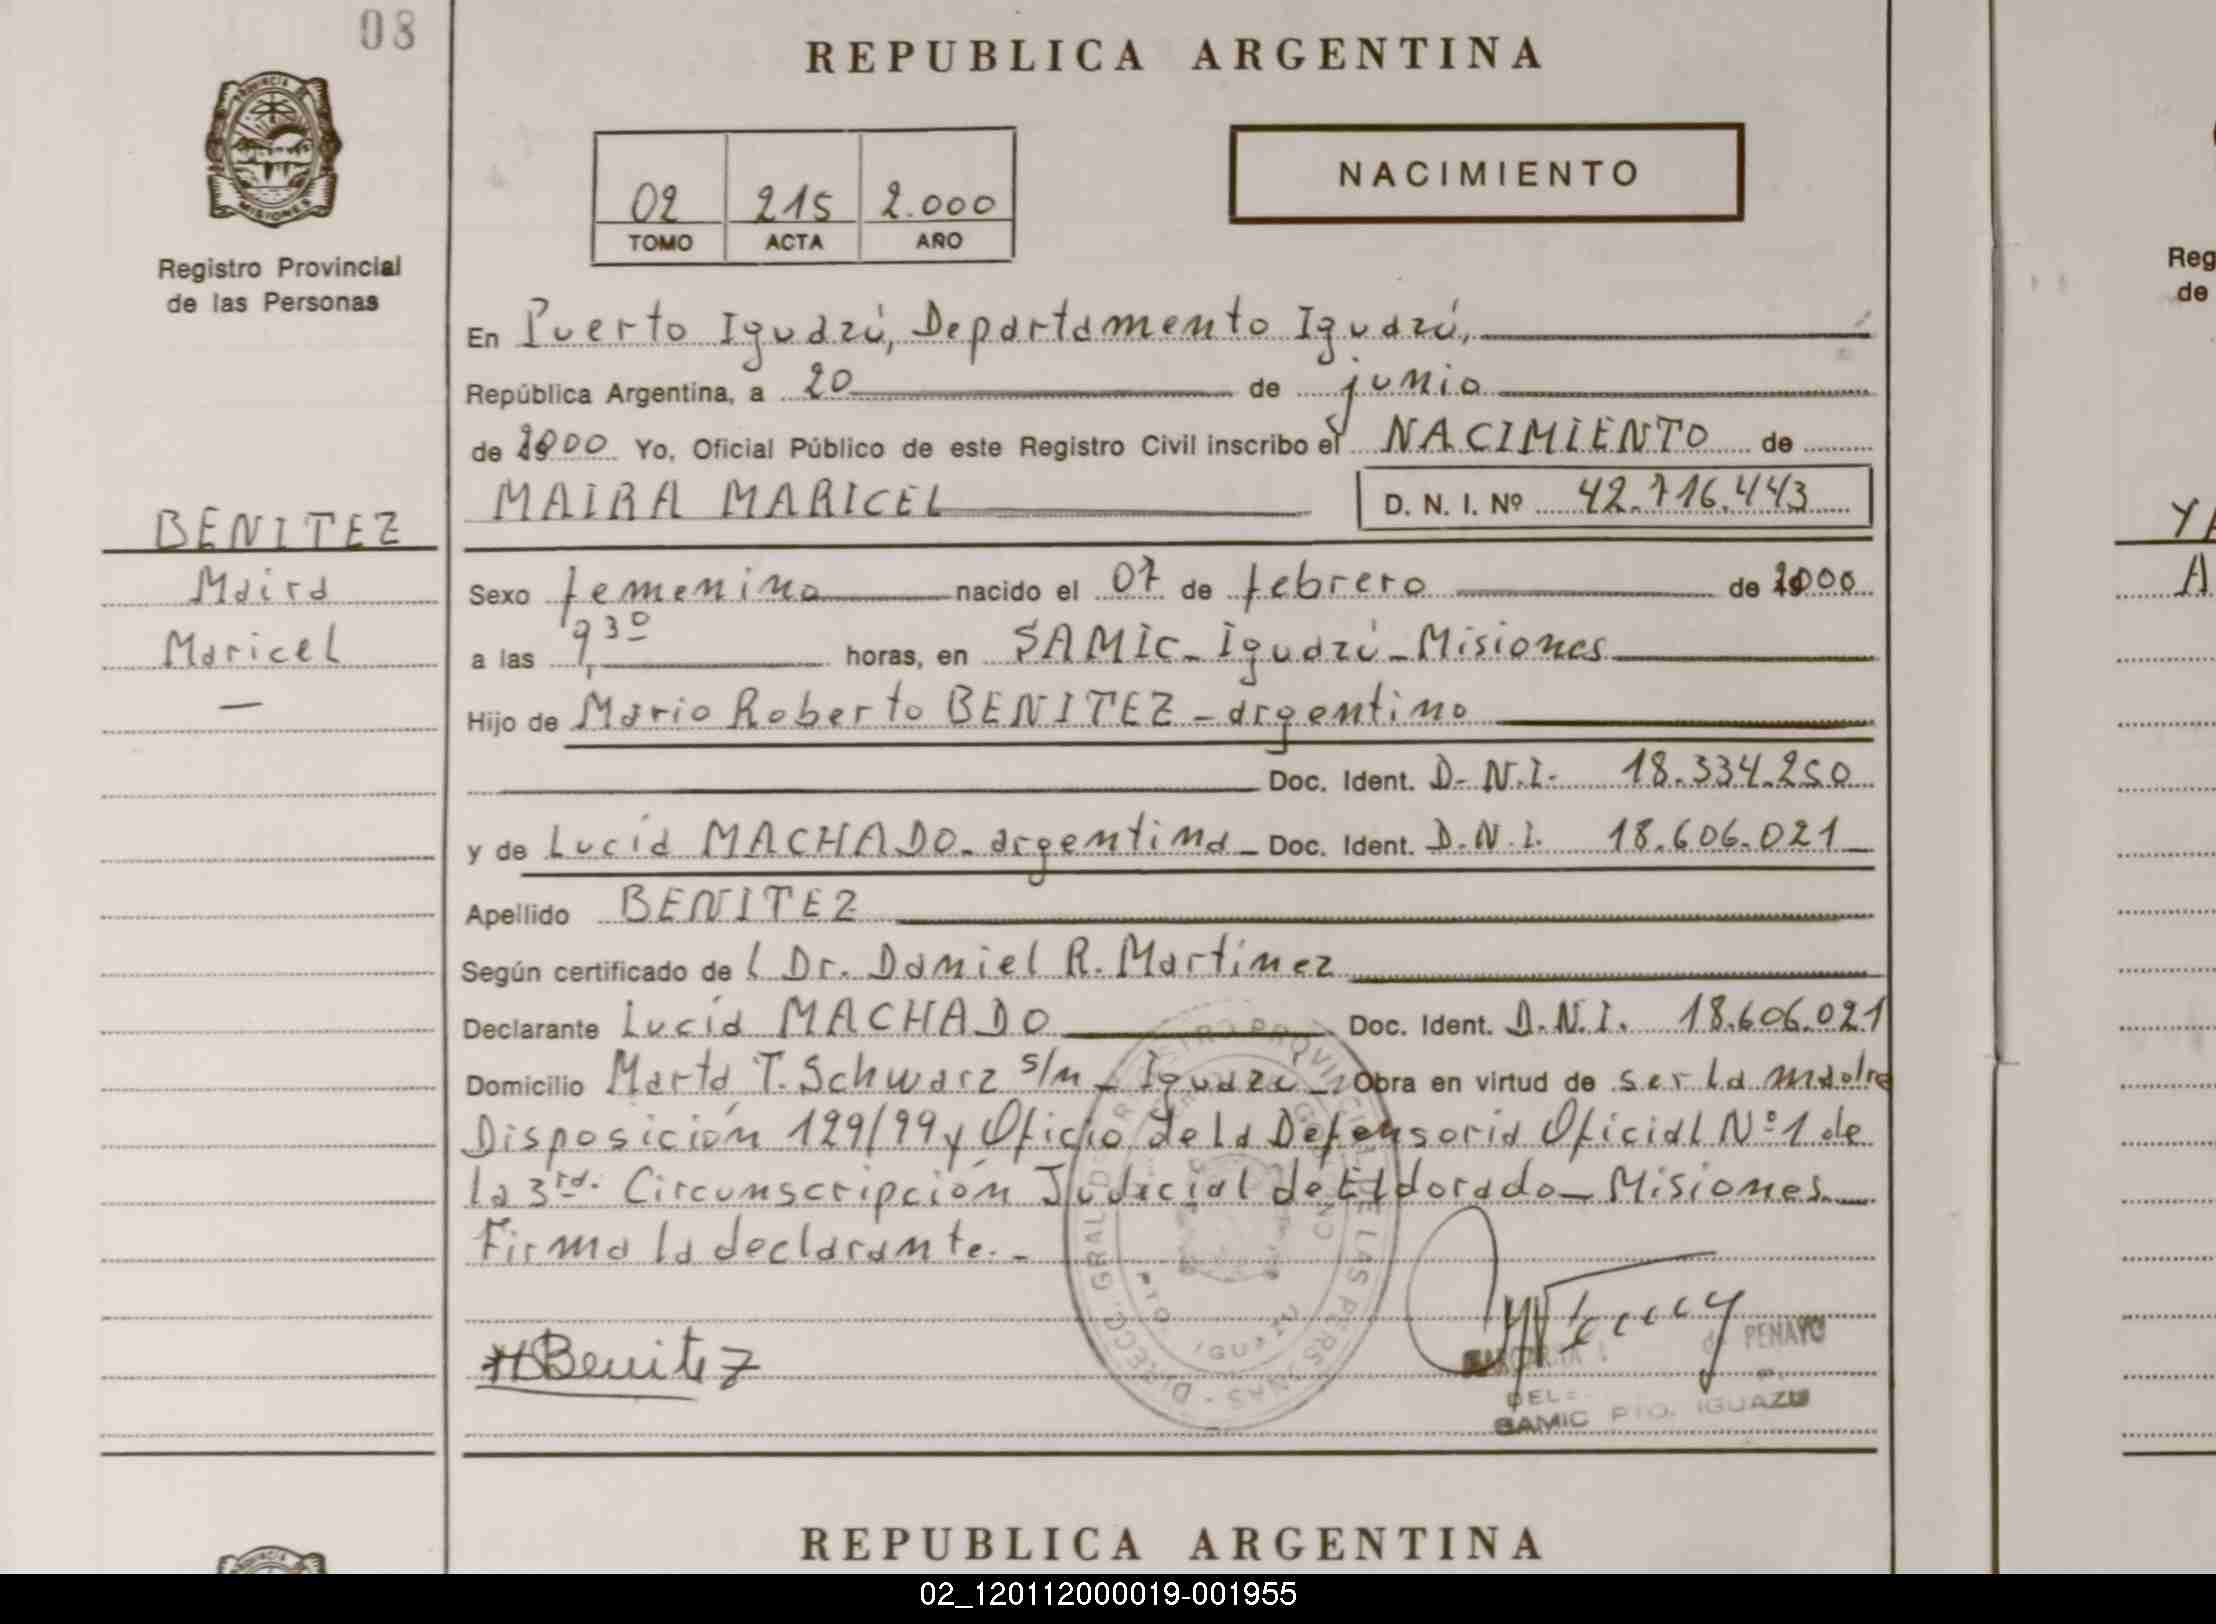 08
REPUBLICA ARGENTINA
PROVINCIA DE
MISIONES
Registro Provincial
de las Personas
02 215 2.000
TOMO ACTA AÑO
NACIMIENTO
En Puerto Iguazú, Departamento Iguazú,
República Argentina, a 20 de junio
de 2000 Yo, Oficial Público de este Registro Civil inscribo el NACIMIENTO de
MAIRA MARICEL D. N. I. Nº 42.716.443
BENITEZ
Maira
Maricel
—
Sexo femenino nacido el 07 de febrero de 2000
a las 9,30 horas, en SAMIC - Iguazú - Misiones
Hijo de Mario Roberto BENITEZ - argentino
Doc. Ident. D.N.I. 18.334.250
y de Lucía MACHADO - argentina - Doc. Ident. D.N.I. 18.606.021
Apellido BENITEZ
Según certificado del Dr. Daniel R. Martínez
Declarante Lucía MACHADO Doc. Ident. D.N.I. 18.606.021
Domicilio Marta T. Schwarz s/n - Iguazú - Obra en virtud de ser la madre
Disposición 129/99 y Oficio de la Defensoría Oficial Nº 1 de
la 3ra. Circunscripción Judicial de Eldorado - Misiones
Firma la declarante. -
Benitez
de PENAYO
SAMIC PTO. IGUAZU
REPUBLICA ARGENTINA
Reg
de
YA
A
02_120112000019-001955